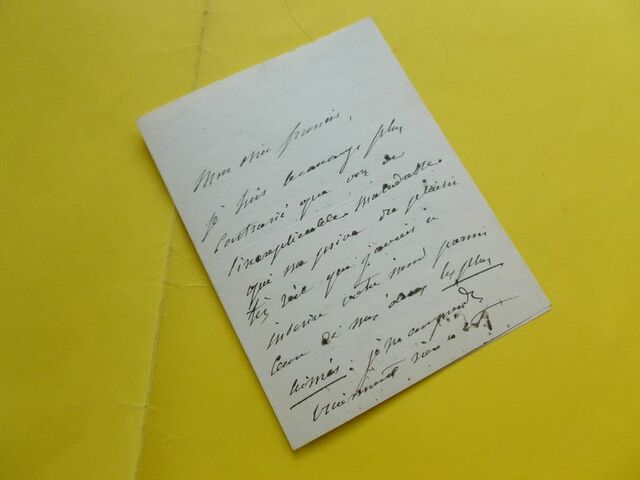 Mon cher Francis,
Je suis beaucoup plus
contrarié que vous de
l'inexplicable maladresse
qui me prive du plaisir
très réel que j'avais à
inscrire votre nom parmi
ceux de nos amis les plus
aimés. je ne comprends
vraiment rien à